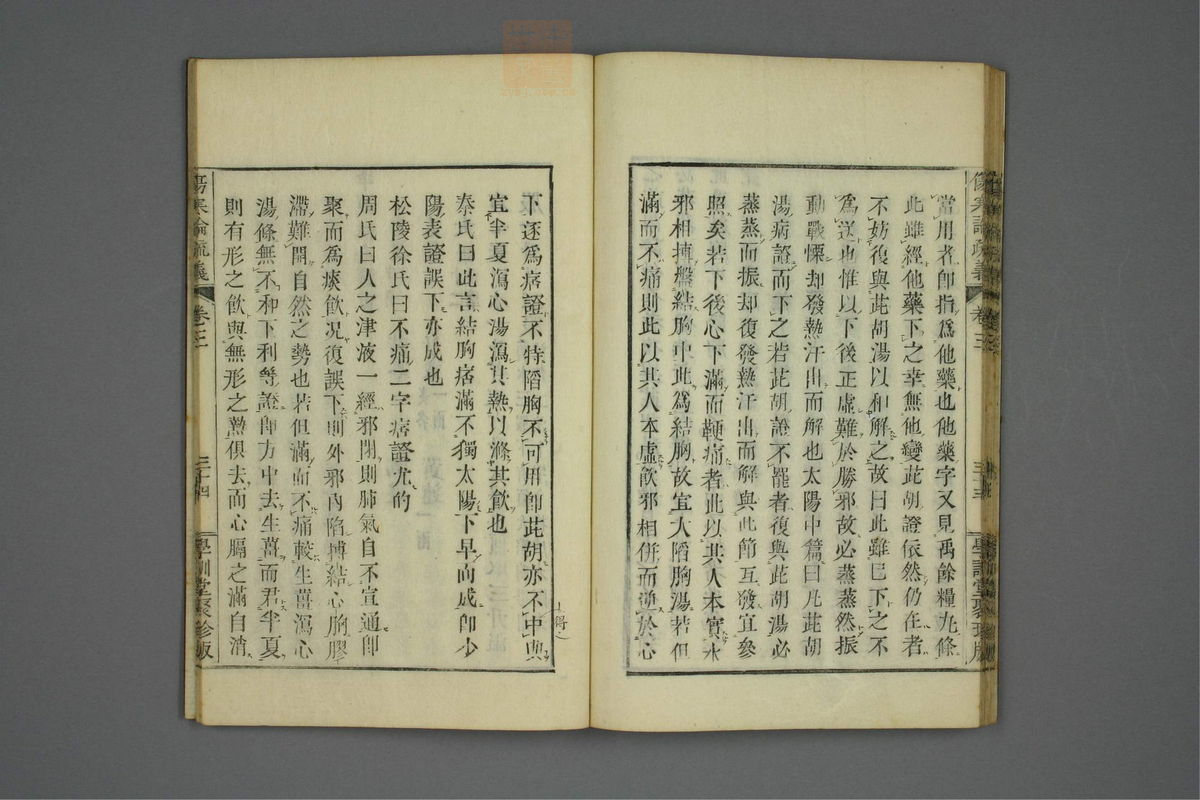 當用者卽指爲他藥也他藥字又見禹餘糧丸條
此雖經他藥下之幸無他變茈胡證依然仍在者
不妨復與茈胡湯以和解之故曰此雖已下之不
爲逆也惟以下後正虛難於勝邪故必蒸蒸然振
動戰慄却發熱汗出而解也太陽中篇曰凡茈胡
湯病證而下之若茈胡證不罷者復與茈胡湯必
蒸蒸而振却復發熱汗出而解與此節互發宜參
照矣若下後心下滿而鞕痛者此以其人本實水
邪相搏盤結胸中此爲結胸故宜大陷胸湯若但
滿而不痛則此以其人本虛飮邪相併而逆於心
傷寒論疏義
卷三
三十三
學訓堂聚珍版
下逐爲痞證不特陷胸不可用卽茈胡亦不中與
宜半夏瀉心湯瀉其熱以滌其飮也
秦氏曰此言結胸痞滿不獨太陽下早而成卽少
陽表證誤下亦成也
松陵徐氏曰不痛二字痞證尤的
周氏曰人之津液一經邪閉則肺氣自不宣通卽
聚而爲痰飮况復誤下則外邪內陷搏結心胸膠
滯難開自然之勢也若但滿而不痛較生薑瀉心
湯條無不和下利等證卽方中去生薑而君半夏
則有形之飮與無形之熱俱去而心膈之滿自消
傷寒論疏義
卷三
三十四
學訓堂聚珍版